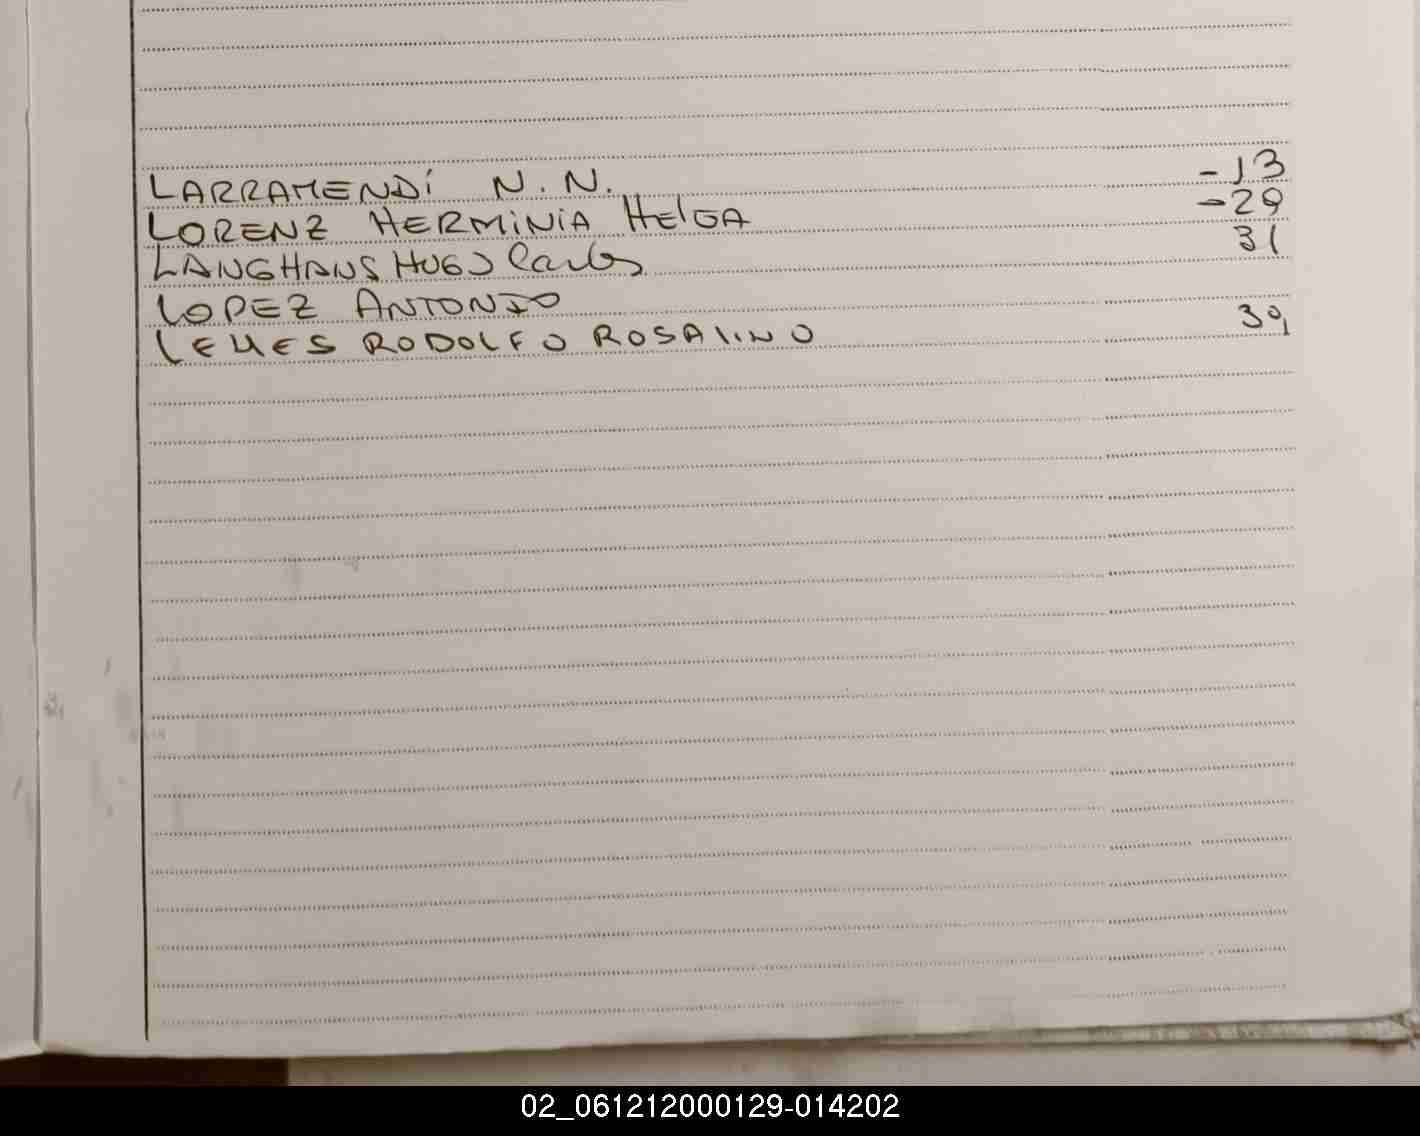 LARRAMENDÍ N.N. -13
LORENZ HERMINIA HElGA -29
LANGHANS HUGO Carlos 31
LOPEZ ANTONIO
LEMES RODOLFO ROSALINO 39
02_061212000129-014202